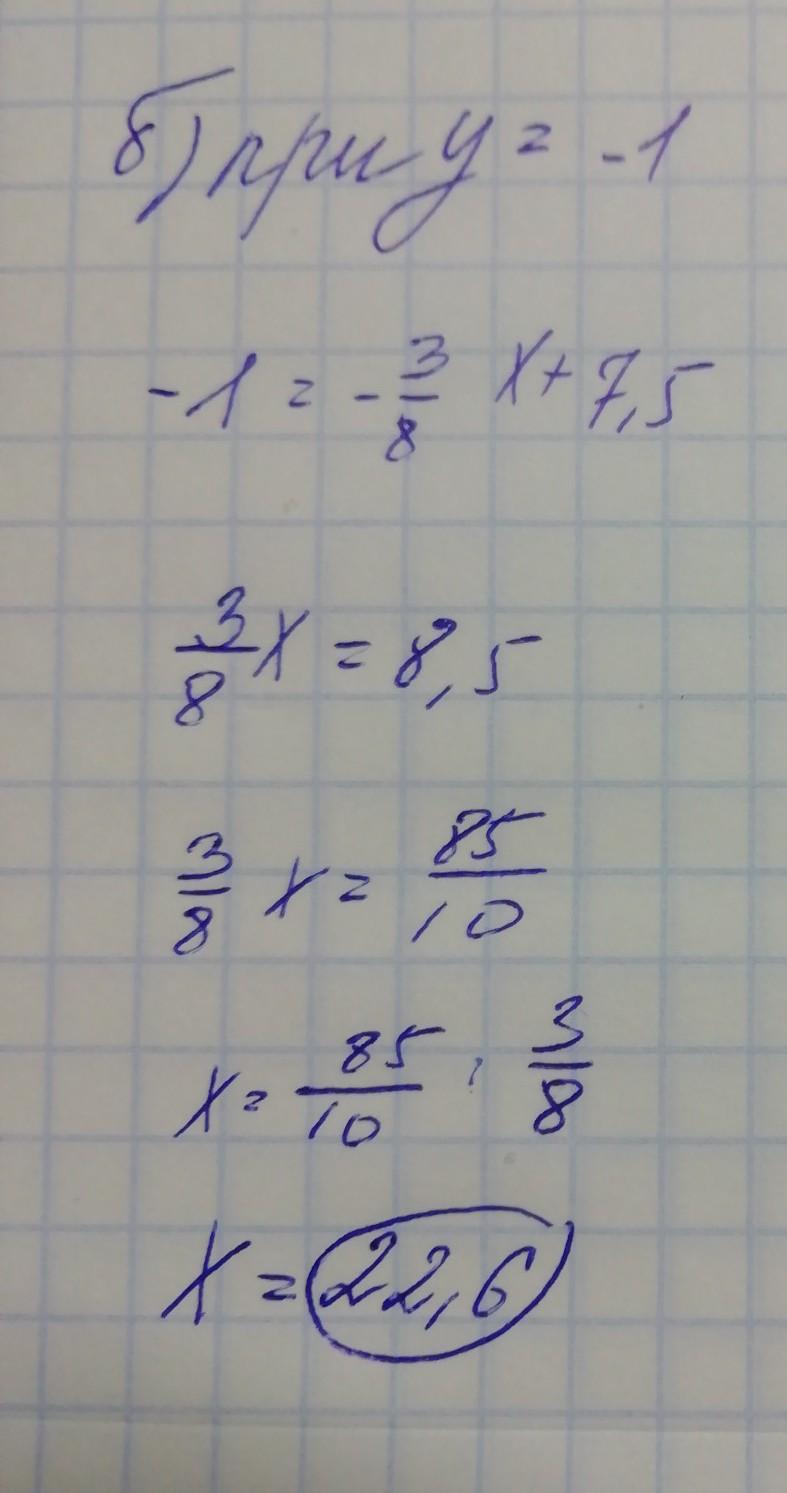 б) при y = -1
-1 = -3/8 x + 7,5
3/8 x = 8,5
3/8 x = 85/10
x = 85/10 : 3/8
x = 22,6